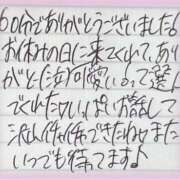 60分でありがとうございました!
お休みの日に来てくれて、あり
がと(泣)可愛いって選ん
でくれたり、いっぱいお話して
沢山イチャイチャできたね♡また
いつでも待ってます♪